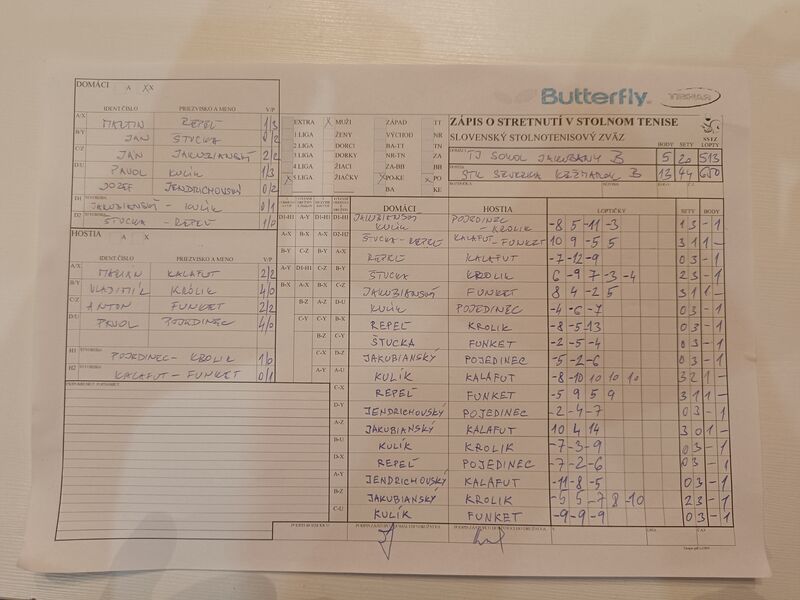 DOMÁCI A X
IDENT ČÍSLO PRIEZVISKO A MENO V/P
A/X MARTIN REPEĽ 1/3
B/Y JÁN ŠTUCKA /2
C/Z JÁN JAKUBIANSKÝ 2/2
D/U PAVOL KULÍK 1/3
JOZEF JENDRICHOVSKÝ 0/2
D1 JAKUBIANSKÝ - KULÍK 0/1
D2 ŠTUCKA - REPEĽ 1/0
HOSTIA A X
IDENT ČÍSLO PRIEZVISKO A MENO V/P
A/X MARIAN KALAFUT 2/2
B/Y VLADIMÍR KRÓLIK 4/0
C/Z ANTON FUNKET 2/2
D/U PAVOL POJEDINEC 4/0
H1 POJEDINEC - KROLIK 1/0
H2 KALAFUT - FUNKET 0/1
Butterfly
EXTRA X MUŽI ZÁPAD TT
1 LIGA ŽENY VÝCHOD NR
2 LIGA DORCI BA-TT TN
3 LIGA DORKY NR-TN ZA
4 LIGA ŽIACI ZA-BB BB
X 5 LIGA ŽIAČKY X PO-KE PO
BA KE
ZÁPIS O STRETNUTÍ V STOLNOM TENISE
SLOVENSKÝ STOLNOTENISOVÝ ZVÄZ
SSTZ
BODY SETY LOPTY
TJ SOKOL JAKUBANY B 5 20 513
STK SEVERKA KEŽMAROK B 13 44 650
DOMÁCI HOSTIA LOPTIČKY SETY BODY
D1-H1 JAKUBIANSKÝ KULÍK POJEDINEC - KROLIK -8 5 -11 -3 1 3 - 1
D2-H2 ŠTUCKA - REPEĽ KALAFUT - FUNKET 10 9 -5 5 3 1 1 -
A-X REPEĽ KALAFUT -7 -12 -9 0 3 - 1
B-Y ŠTUCKA KROLIK 6 -9 7 -3 -4 2 3 - 1
C-Z JAKUBIANSKÝ FUNKET 8 4 -2 5 3 1 1 -
D-U KULÍK POJEDINEC -4 -6 -7 0 3 - 1
REPEĽ KROLIK -8 -5 -13 0 3 - 1
ŠTUCKA FUNKET -2 -5 -4 0 3 - 1
JAKUBIANSKÝ POJEDINEC -5 -2 -6 0 3 - 1
KULÍK KALAFUT -8 -10 10 10 10 3 2 1 -
C-X REPEĽ FUNKET -5 9 5 9 3 1 1 -
D-Y JENDRICHOVSKÝ POJEDINEC -2 -4 -7 0 3 - 1
A-Z JAKUBIANSKÝ KALAFUT 10 4 14 3 0 1 -
B-U KULÍK KROLIK -7 -3 -9 0 3 - 1
D-X REPEĽ POJEDINEC -7 -2 -6 0 3 - 1
A-Y JENDRICHOVSKÝ KALAFUT -11 -8 -5 0 3 - 1
B-Z JAKUBIANSKÝ KROLIK -5 5 -7 8 -10 2 3 - 1
C-U KULÍK FUNKET -9 -9 -9 0 3 - 1